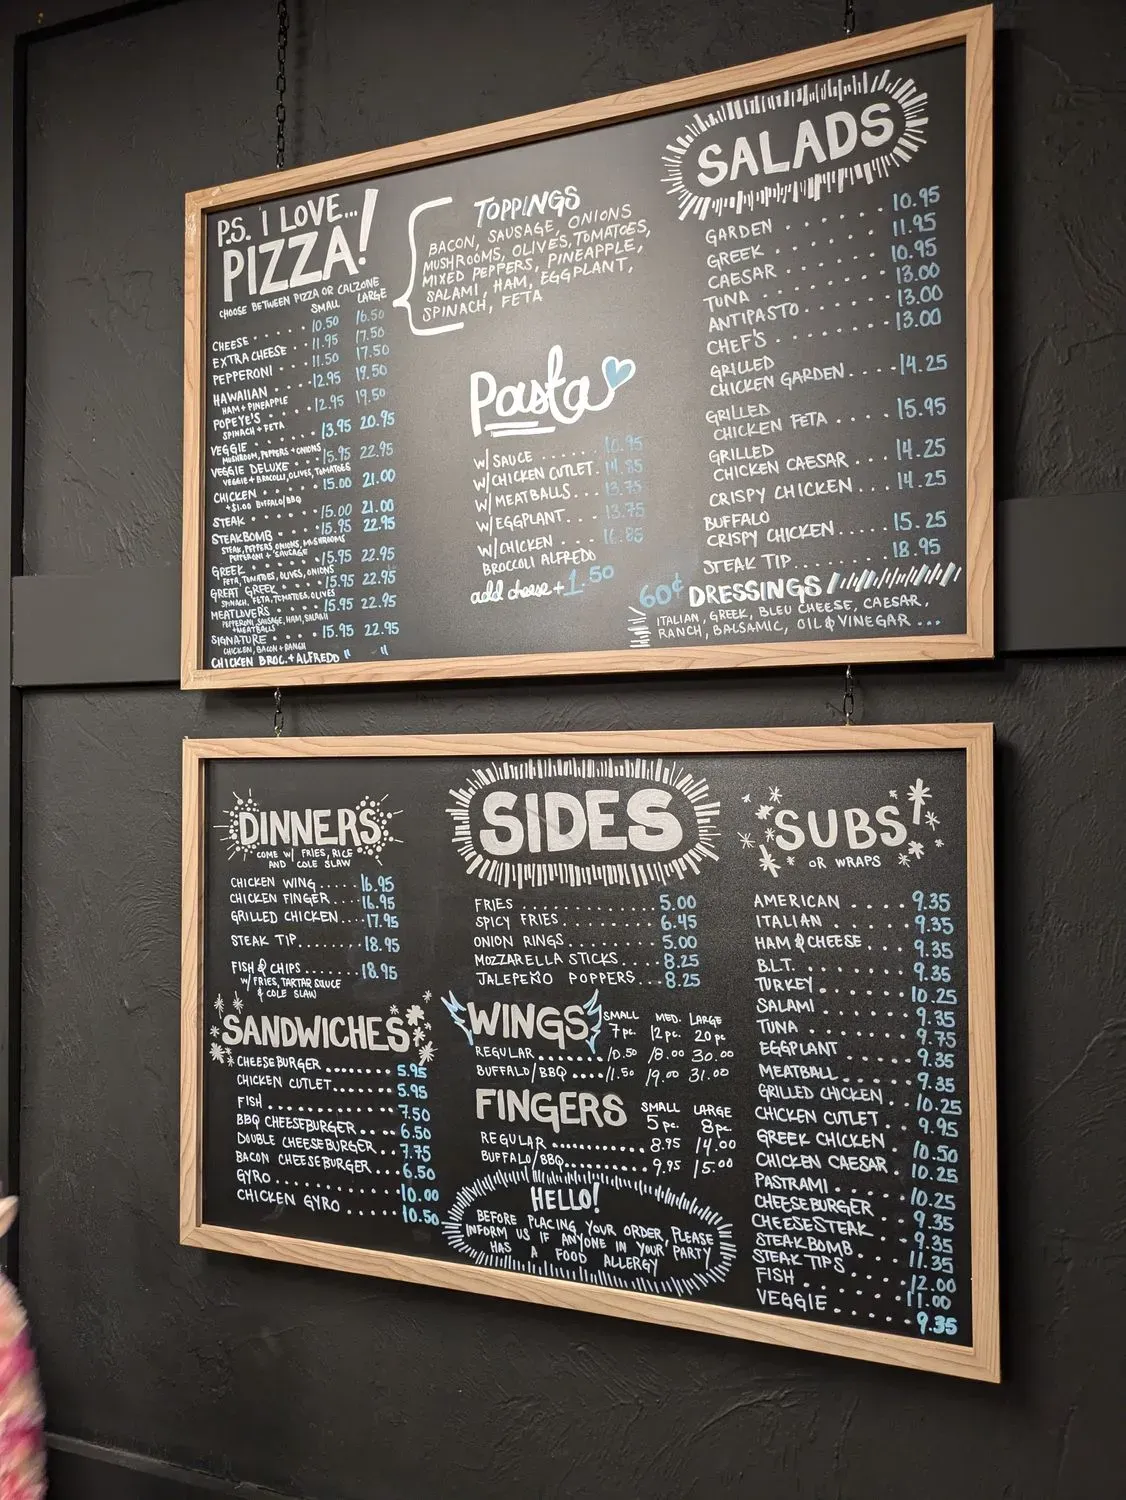 P.S. I LOVE...
PIZZA!
CHOOSE BETWEEN PIZZA OR CALZONE
SMALL LARGE
CHEESE .... 10.50 16.50
EXTRA CHEESE .. 11.95 17.50
PEPPERONI .... 11.50 17.50
HAWAIIAN .... 12.95 19.50
HAM + PINEAPPLE
POPEYE'S .... 12.95 19.50
SPINACH + FETA
VEGGIE .... 13.95 20.95
MUSHROOM, PEPPERS + ONIONS
VEGGIE DELUXE ... 15.95 22.95
VEGGIE + BROCOLLI, OLIVES, TOMATOES
CHICKEN .... 15.00 21.00
+$1.00 BUFFALO/BBQ
STEAK .... 15.00 21.00
STEAKBOMB .... 15.95 22.95
STEAK, PEPPERS, ONIONS, MUSHROOMS
PEPPERONI + SAUSAGE
GREEK .... 15.95 22.95
FETA, TOMATOES, OLIVES, ONIONS
GREAT GREEK ..... 15.95 22.95
SPINACH, FETA, TOMATOES, OLIVES
MEATLOVERS .... 15.95 22.95
PEPPERONI, SAUSAGE, HAM, SALAMI
+ MEATBALLS
SIGNATURE .... 15.95 22.95
CHICKEN, BACON + RANCH
CHICKEN BROC. + ALFREDO " "
TOPPINGS
BACON, SAUSAGE, ONIONS
MUSHROOMS, OLIVES, TOMATOES,
MIXED PEPPERS, PINEAPPLE,
SALAMI, HAM, EGGPLANT,
SPINACH, FETA
Pasta
W/ SAUCE ..... 10.95
W/ CHICKEN CUTLET. 14.85
W/ MEATBALLS ... 13.75
W/ EGGPLANT .... 13.75
W/ CHICKEN .... 16.85
BROCCOLI ALFREDO
add cheese + 1.50
SALADS
GARDEN ...... 10.95
GREEK ....... 11.95
CAESAR ...... 10.95
TUNA ........ 13.00
ANTIPASTO ..... 13.00
CHEF'S ....... 13.00
GRILLED
CHICKEN GARDEN .... 14.25
GRILLED
CHICKEN FETA .... 15.95
GRILLED
CHICKEN CAESAR ... 14.25
CRISPY CHICKEN .... 14.25
BUFFALO
CRISPY CHICKEN .... 15.25
STEAK TIP ...... 18.95
60¢ DRESSINGS
ITALIAN, GREEK, BLEU CHEESE, CAESAR,
RANCH, BALSAMIC, OIL & VINEGAR ...
DINNERS
COME W/ FRIES, RICE
AND COLE SLAW
CHICKEN WING ..... 16.95
CHICKEN FINGER .... 16.95
GRILLED CHICKEN .... 17.95
STEAK TIP ....... 18.95
FISH & CHIPS ....... 18.95
W/ FRIES, TARTAR SAUCE
& COLE SLAW
SANDWICHES
CHEESEBURGER ........ 5.95
CHICKEN CUTLET ....... 5.95
FISH ............ 7.50
BBQ CHEESEBURGER .... 6.50
DOUBLE CHEESEBURGER ... 7.75
BACON CHEESEBURGER ... 6.50
GYRO ........... 10.00
CHICKEN GYRO ..... 10.50
SIDES
FRIES ............ 5.00
SPICY FRIES ........ 6.45
ONION RINGS ....... 5.00
MOZZARELLA STICKS .... 8.25
JALEPEÑO POPPERS ... 8.25
WINGS SMALL MED. LARGE
7 pc. 12 pc. 20 pc
REGULAR ........ 10.50 18.00 30.00
BUFFALO/BBQ .... 11.50 19.00 31.00
FINGERS SMALL LARGE
5 pc. 8 pc.
REGULAR ........... 8.95 14.00
BUFFALO/BBQ ......... 9.95 15.00
HELLO!
BEFORE PLACING YOUR ORDER, PLEASE
INFORM US IF ANYONE IN YOUR PARTY
HAS A FOOD ALLERGY
SUBS
OR WRAPS
AMERICAN .... 9.35
ITALIAN ..... 9.35
HAM & CHEESE ... 9.35
B.L.T. ....... 9.35
TURKEY ...... 10.25
SALAMI ...... 9.35
TUNA ....... 9.75
EGGPLANT ..... 9.35
MEATBALL ..... 9.35
GRILLED CHICKEN ... 10.25
CHICKEN CUTLET ... 9.95
GREEK CHICKEN ... 10.50
CHICKEN CAESAR . 10.25
PASTRAMI ..... 10.25
CHEESEBURGER ... 9.35
CHEESESTEAK ... 9.35
STEAKBOMB .... 11.35
STEAK TIPS .... 12.00
FISH ....... 11.00
VEGGIE ..... 9.35